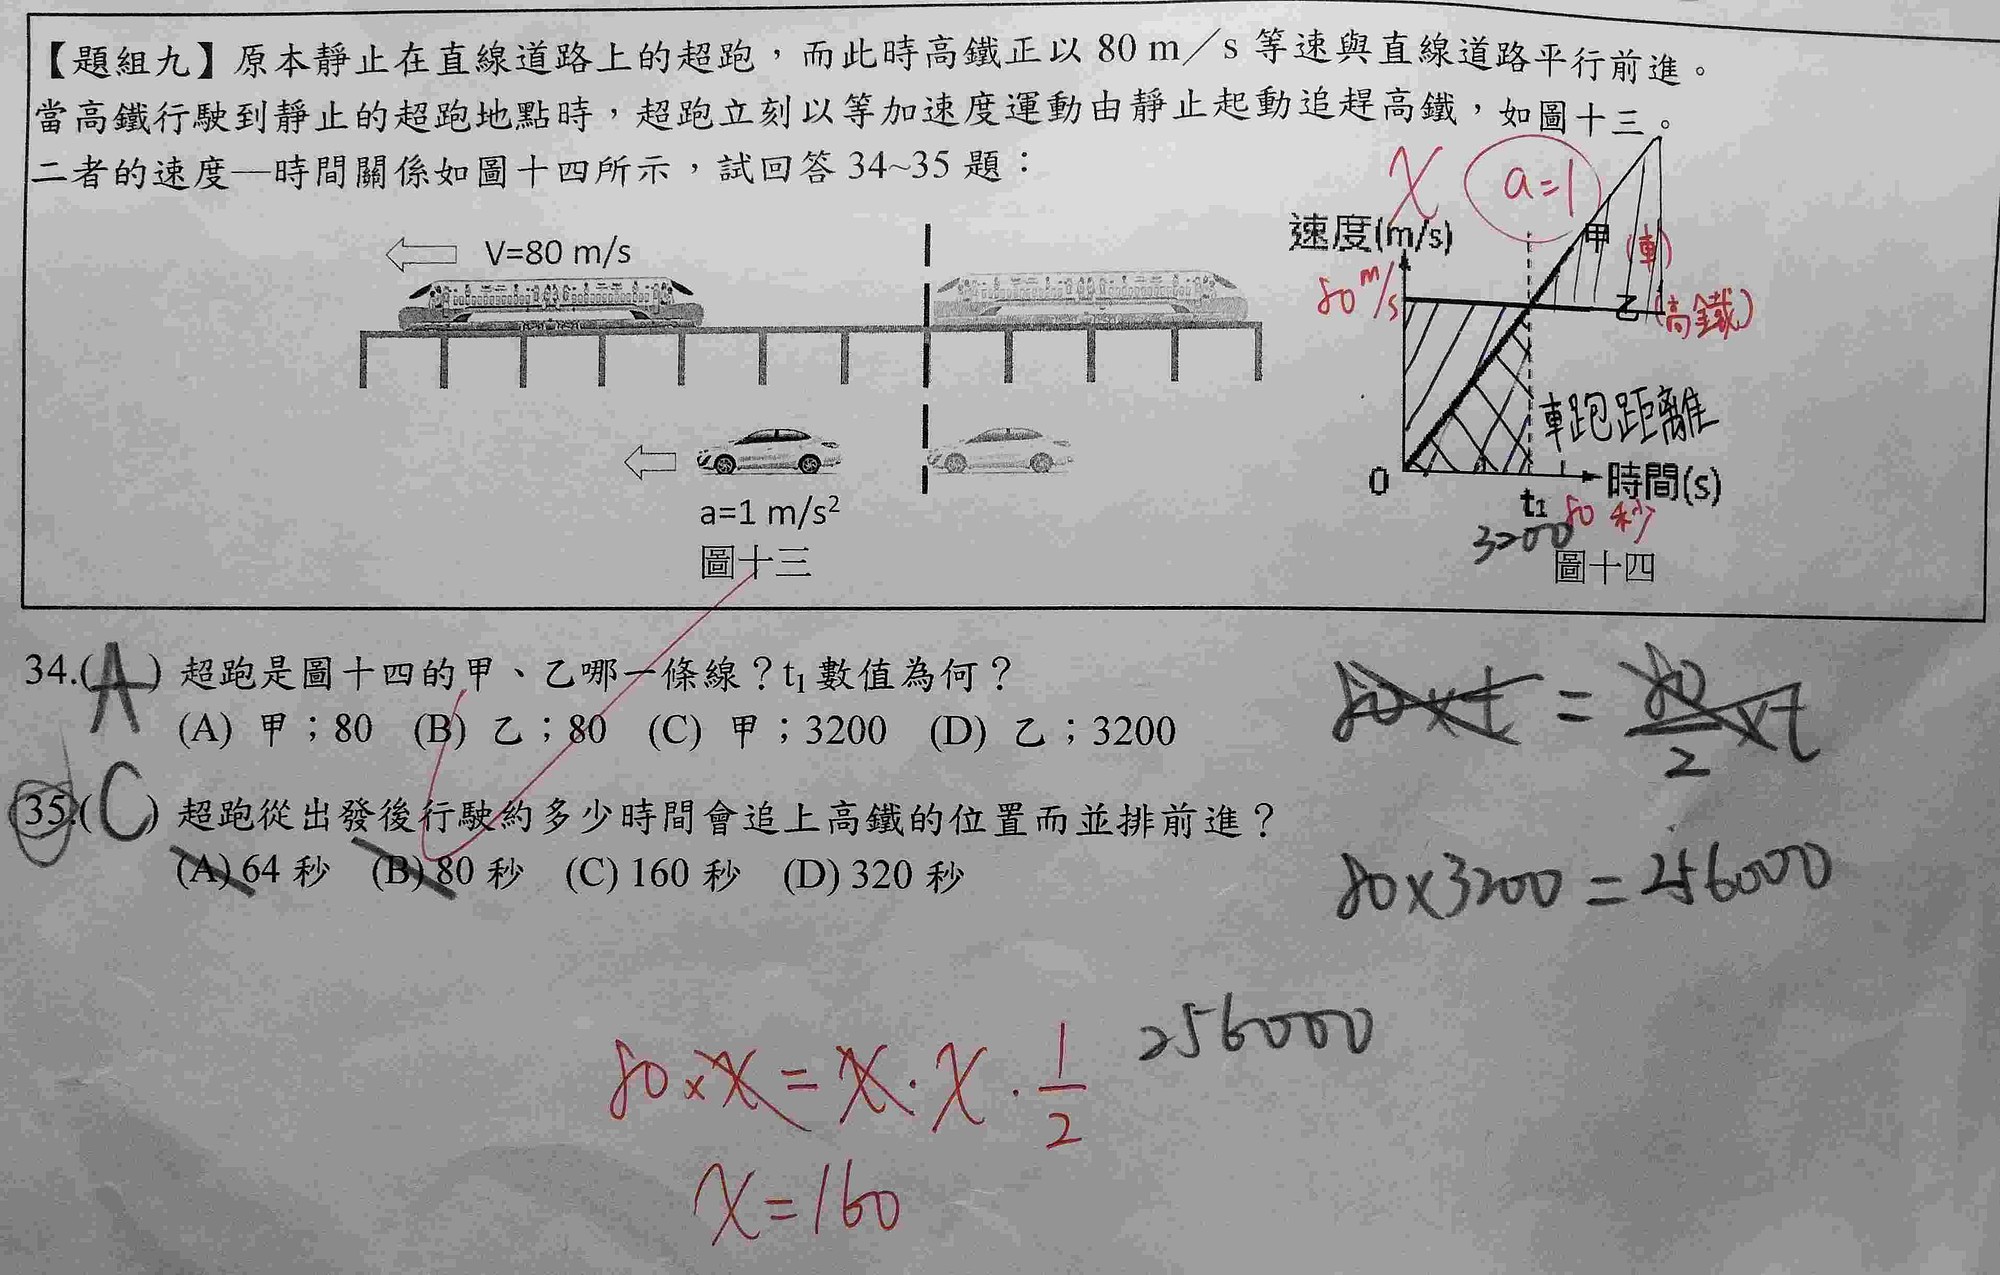 【題組九】原本靜止在直線道路上的超跑，而此時高鐵正以 80 m／s 等速與直線道路平行前進。
當高鐵行駛到靜止的超跑地點時，超跑立刻以等加速度運動由靜止起動追趕高鐵，如圖十三。
二者的速度—時間關係如圖十四所示，試回答 34~35 題：
V=80 m/s
a=1 m/s²
圖十三
x
a=1
速度(m/s)
80 m/s
甲 (車)
乙 (高鐵)
車跑距離
0
時間(s)
t1 80 秒
3200
圖十四
34.(A) 超跑是圖十四的甲、乙哪一條線？t1 數值為何？
(A) 甲；80 (B) 乙；80 (C) 甲；3200 (D) 乙；3200
80×t = 80/2 ×t
35.(C) 超跑從出發後行駛約多少時間會追上高鐵的位置而並排前進？
(A) 64 秒 (B) 80 秒 (C) 160 秒 (D) 320 秒
80×3200=256000
256000
80×x=x·x·1/2
x=160